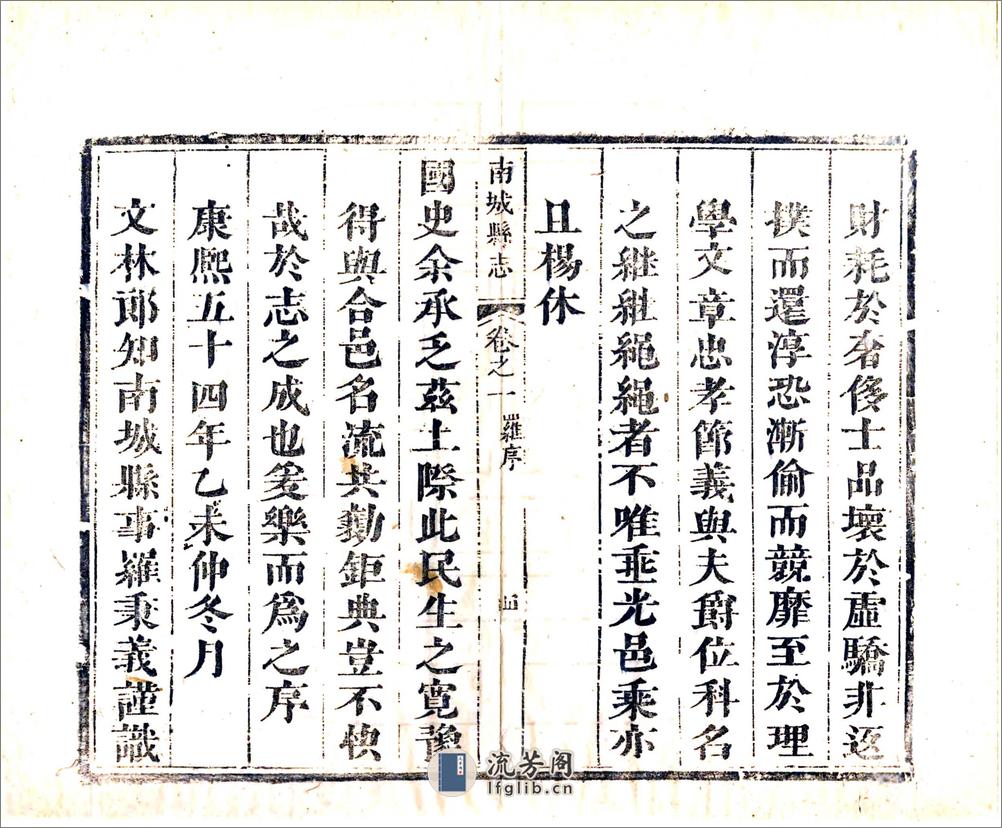 財耗於奢侈士品壞於虛驕非返
撲而還淳恐漸偷而競靡至於理
學文章忠孝節義與夫爵位科名
之繼繼繩繩者不唯垂光邑乘亦
且楊休
南城縣志
卷之一
羅序
國史余承乏茲土際此民生之寬豫
得與合邑名流共勷鉅典豈不快
哉於志之成也爰樂而爲之序
康熙五十四年乙未仲冬月
文林郎知南城縣事羅秉義謹識
流芳阁
lfglib.cn